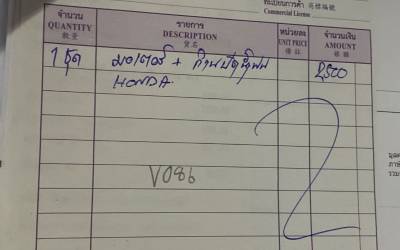 ทะเบียนการค้า 商標編號
Commercial License
จำนวน รายการ หน่วยละ จำนวนเงิน
QUANTITY DESCRIPTION UNIT PRICE AMOUNT
數量 貨名 價目 銀額
1 ชุด มอเตอร์ + ก้านปัดน้ำฝน 2,500
HONDA
V086